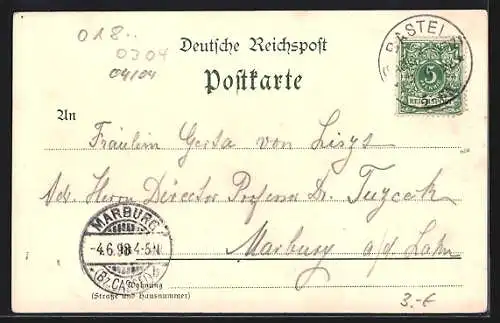 018..
0304
04/04
Deutsche Reichspost
Postkarte
CASTEL
5
REICHSPOST
An
Fräulein Gerta von
Adr. Herrn Director Professor Dr. Tuczek
Marburg a/d. Lahn
MARBURG
-4.6.98.4-5N
(Bz. CASSEL)
Wohnung
(Straße und Hausnummer)
3.-€